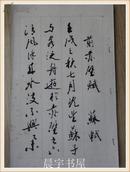 前赤壁赋 蘇軾
壬戌之秋七月既望蘇子
与客泛舟游於赤壁之下
清风徐来水波不兴
晨宇書屋